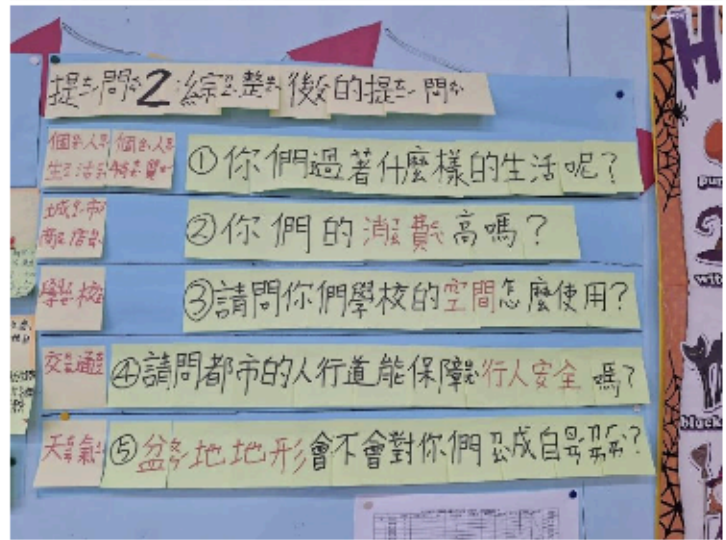 提問2:綜整後的提問
個人 個人
生活 特質
①你們過著什麼樣的生活呢?
城市
商店
②你們的消費高嗎?
學校
③請問你們學校的空間怎麼使用?
交通
④請問都市的人行道能保障行人安全嗎?
天氣
⑤盆地地形會不會對你們成自?
H
pu
wit
black